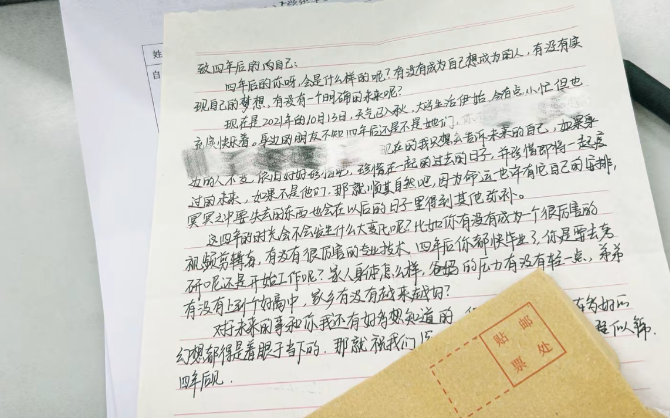 姓
自
致四年后的自己：
四年后的你呀，会是什么样的呢？有没有成为自己想成为的人，有没有实
现自己的梦想，有没有一个明确的未来呢？
现在是2021年的10月13日，天气已入秋，大学生活伊始，会有点小忙但也
充度快乐着。身边的朋友不知四年后还是不是她们，
现在的我只想么告诉未来的自己，如果身
边的人不变，依旧好好珍惜吧，珍惜在一起的过去的日子，并珍惜即将一起度
过的未来，如果不是他们，那就顺其自然吧，因为命运也许有它自己的安排，
冥冥之中要失去的东西也会在以后的日子里得到其他弥补。
这四年的时光会不会发生什么大变化呢？比如你有没有成为一个很厉害的
视频剪辑者，有没有很厉害的专业技术，四年后你都快毕业了，你是要去考
研呢还是开始工作呢？家人身体怎么样，爸妈的压力有没有轻一点，弟弟
有没有上到个好高中，家乡有没有越来越好？
对于未来的事和你我还有好多想知道的，
幻想都得是着眼于当下的，那就祝我们
四年后见.
贴邮
票处